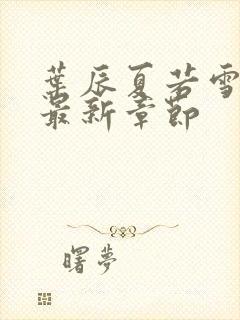 葉辰夏若雪
最新章節
曙夢